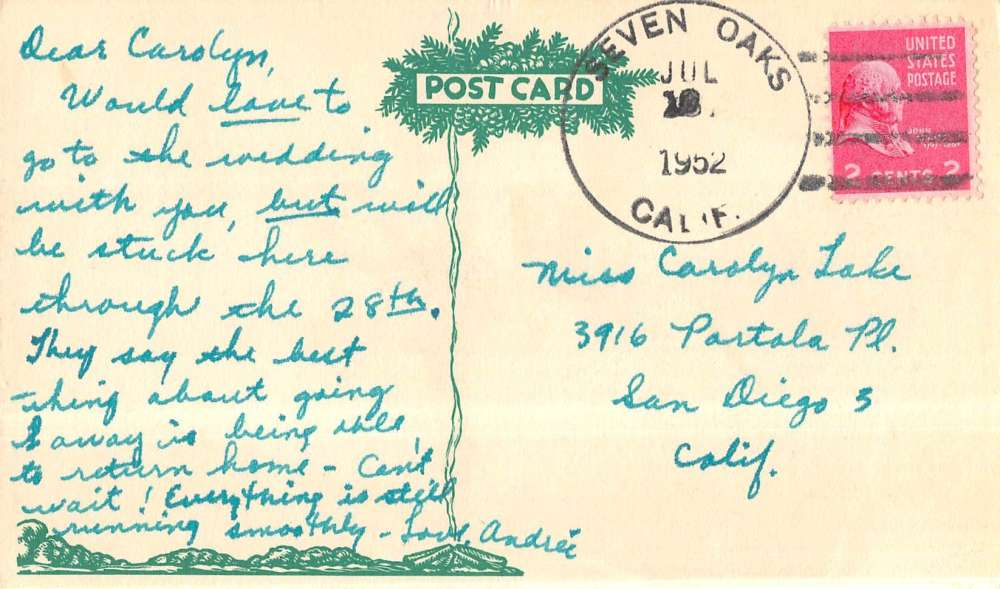 Dear Carolyn,
Would love to
go to the wedding
with you, but will
be stuck here
through the 28th.
They say the best
thing about going
away is being able
to return home - Can't
wait! Everything is still
running smoothly - Love, Andreé
POST CARD
SEVEN OAKS
JUL
1952
CALIF.
UNITED
STATES
POSTAGE
JOHN
2 CENTS 2
Miss Carolyn Lake
3916 Portola Pl.
San Diego 3
Calif.